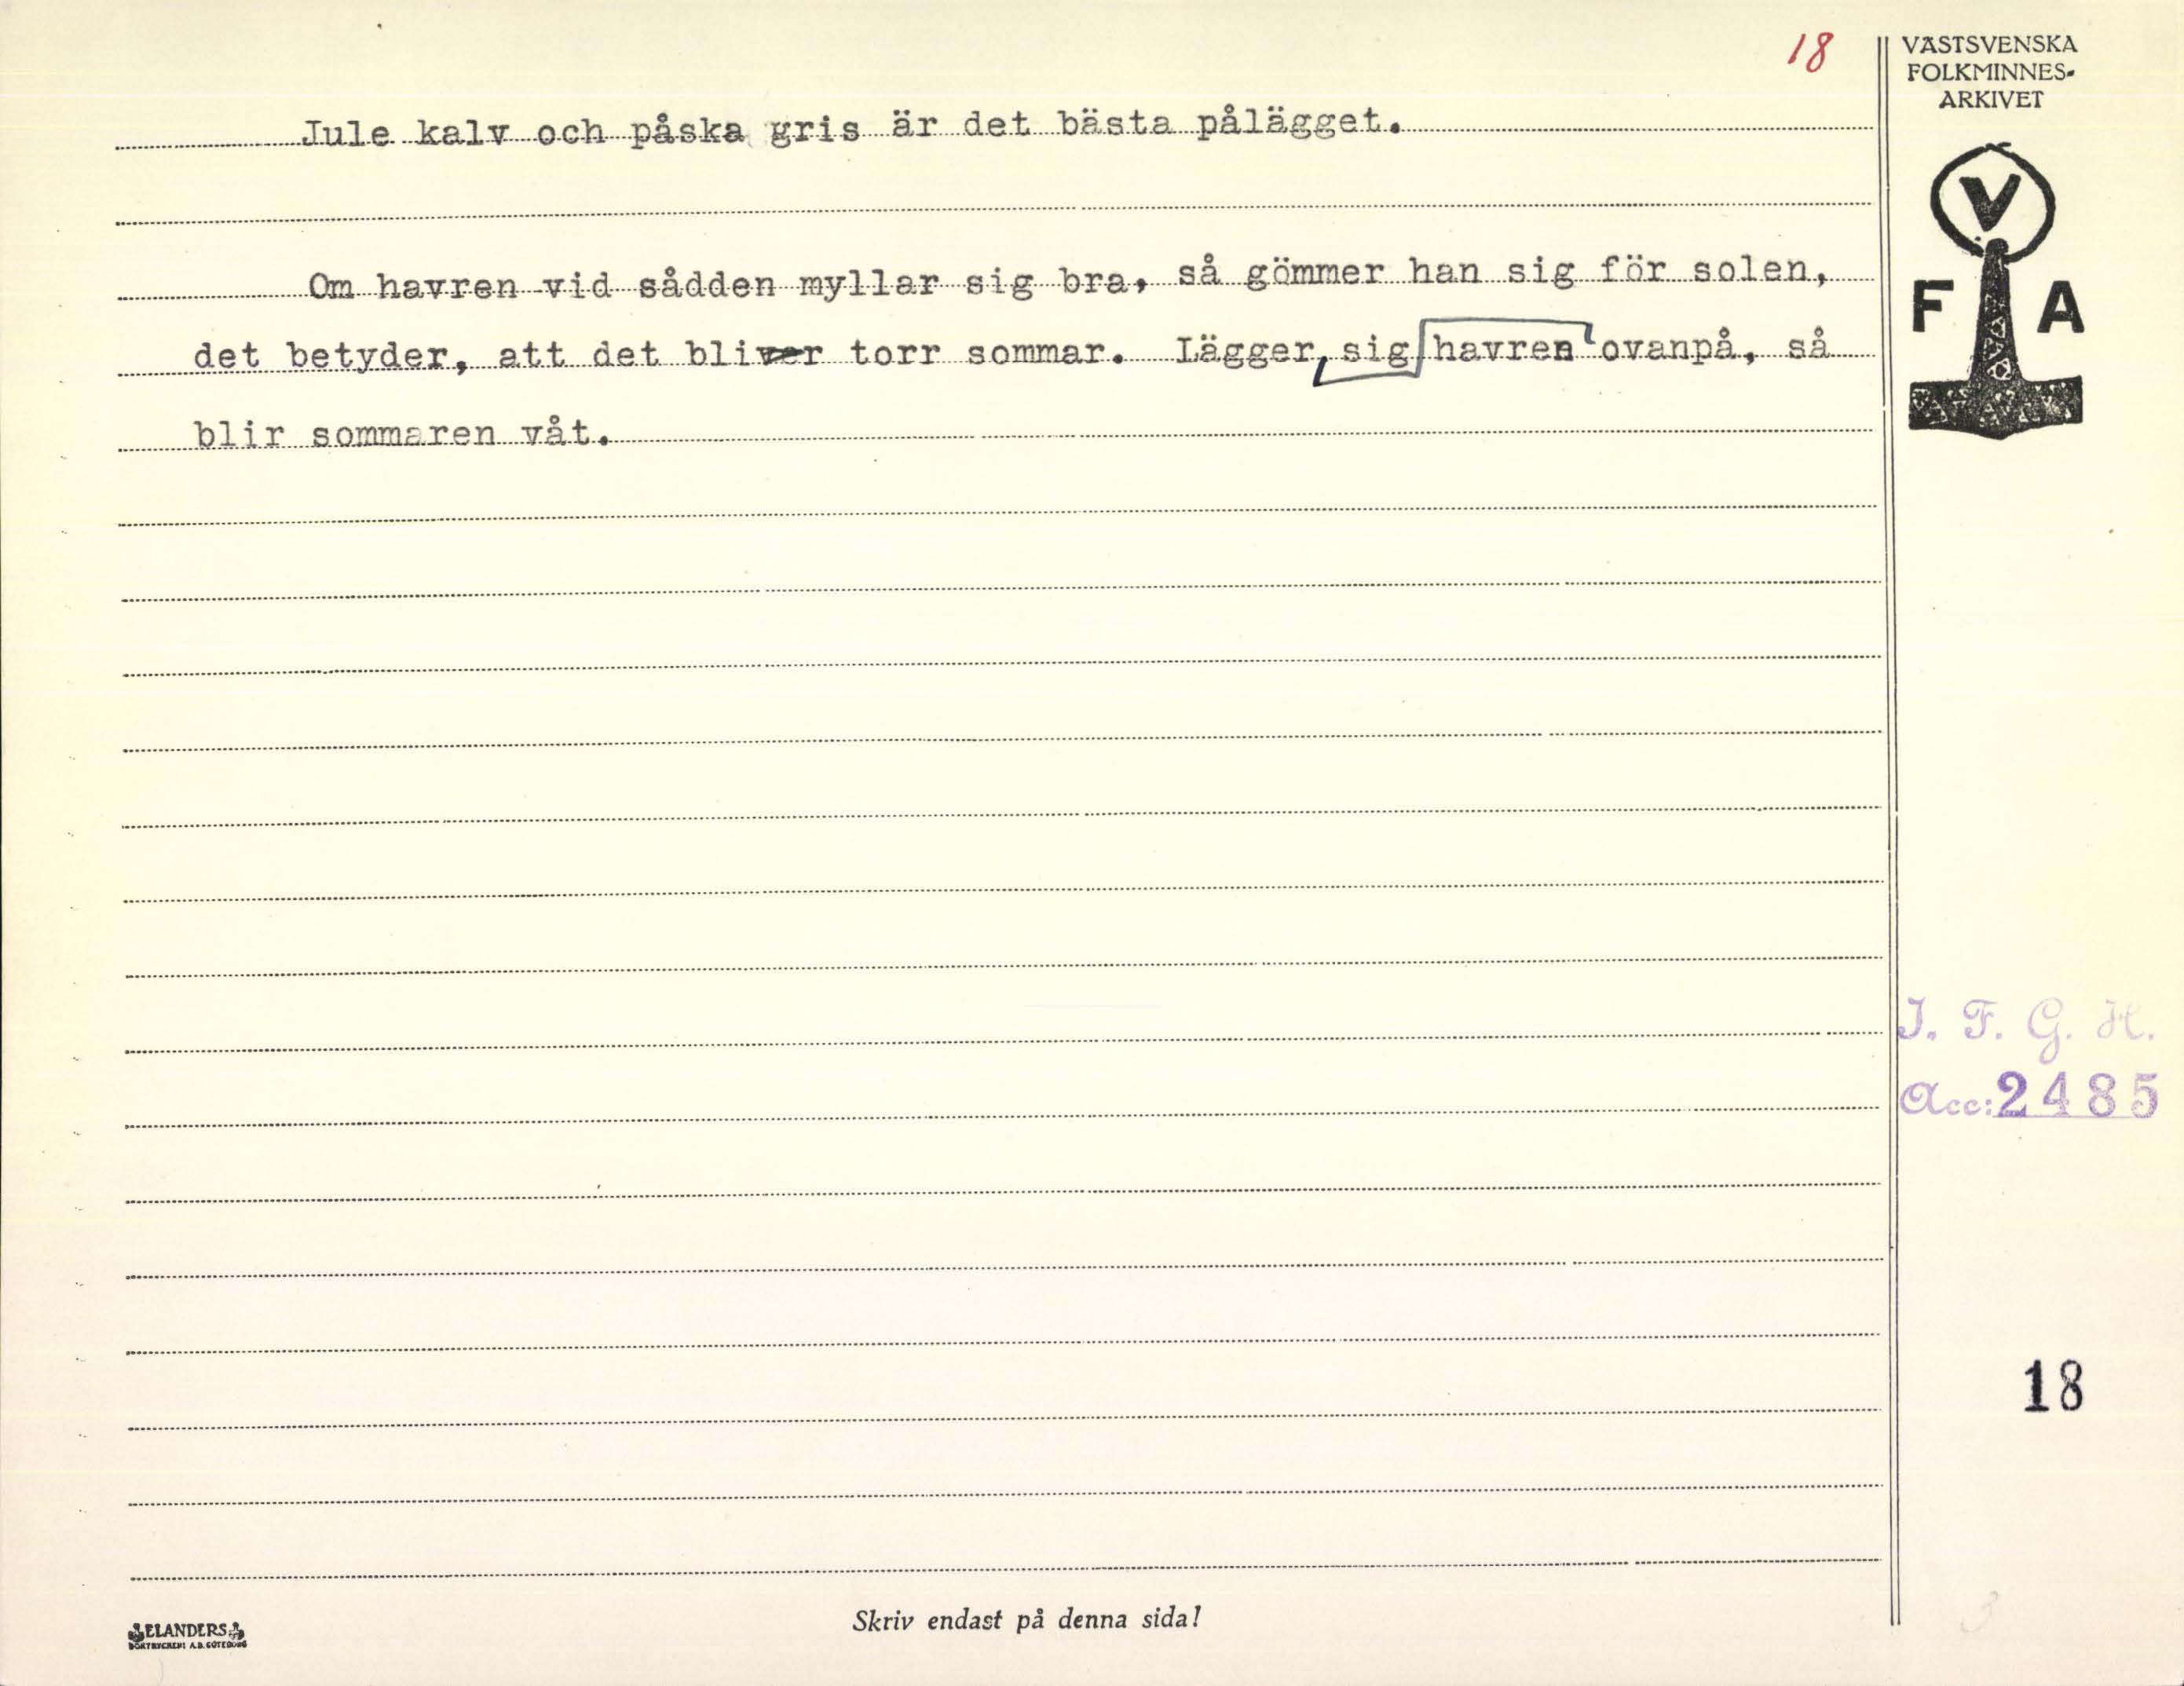 18
VÄSTSVENSKA
FOLKMINNES-
ARKIVET
Jule kalv och påska gris är det bästa pålägget.
V
F A
Om havren vid sådden myllar sig bra, så gömmer han sig för solen,
det betyder, att det bliver torr sommar. Lägger sig havren ovanpå, så
blir sommaren våt.
I. F. G. H.
Acc: 2485
18
3
ELANDERS
BOKTRYCKERI A.B. GÖTEBORG
Skriv endast på denna sida!